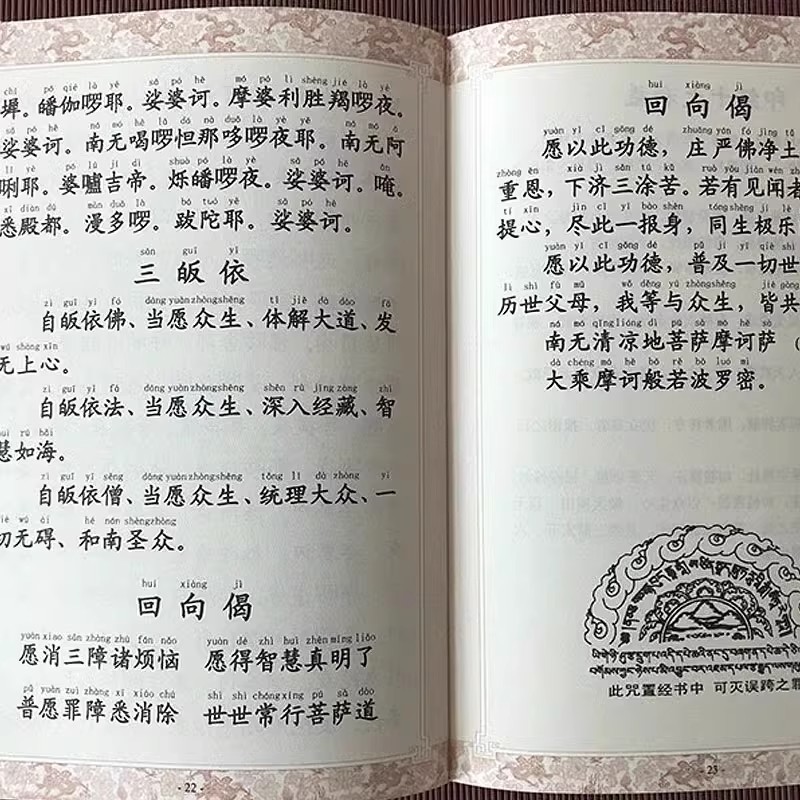 墀。皤伽啰耶。娑婆诃。摩婆利胜羯啰夜。
娑婆诃。南无喝啰怛那哆啰夜耶。南无阿
唎耶。婆嚧吉帝。烁皤啰夜。娑婆诃。唵。
悉殿都。漫多啰。跋陀耶。娑婆诃。
sān guī yī
三皈依
zì guī yī fó dāng yuàn zhòng shēng tǐ jiě dà dào fā
自皈依佛、当愿众生、体解大道、发
wú shàng xīn
无上心。
zì guī yī fǎ dāng yuàn zhòng shēng shēn rù jīng zàng zhì
自皈依法、当愿众生、深入经藏、智
huì rú hǎi
慧如海。
zì guī yī sēng dāng yuàn zhòng shēng tǒng lǐ dà zhòng yí
自皈依僧、当愿众生、统理大众、一
qiè wú ài hé nán shèng zhòng
切无碍、和南圣众。
huí xiàng jì
回向偈
yuàn xiāo sān zhàng zhū fán nǎo yuàn dé zhì huì zhēn míng liǎo
愿消三障诸烦恼 愿得智慧真明了
pǔ yuàn zuì zhàng xī xiāo chú shì shì cháng xíng pú sà dào
普愿罪障悉消除 世世常行菩萨道
- 22 -
huí xiàng jì
回向偈
yuàn yǐ cǐ gōng dé zhuāng yán fó jìng tǔ
愿以此功德，庄严佛净土
zhòng ēn xià jì sān tú kǔ ruò yǒu jiàn wén zhě
重恩，下济三涂苦。若有见闻者
tí xīn jìn cǐ yī bào shēn tóng shēng jí lè
提心，尽此一报身，同生极乐
yuàn yǐ cǐ gōng dé pǔ jí yī qiè shì
愿以此功德，普及一切世
lì shì fù mǔ wǒ děng yǔ zhòng shēng jiē gòng
历世父母，我等与众生，皆共
ná mó qīng liáng dì pú sà mó hē sà
南无清凉地菩萨摩诃萨（
dà chéng mó hē bō rě bō luó mì
大乘摩诃般若波罗密。
此咒置经书中 可灭误跨之罪
- 23 -